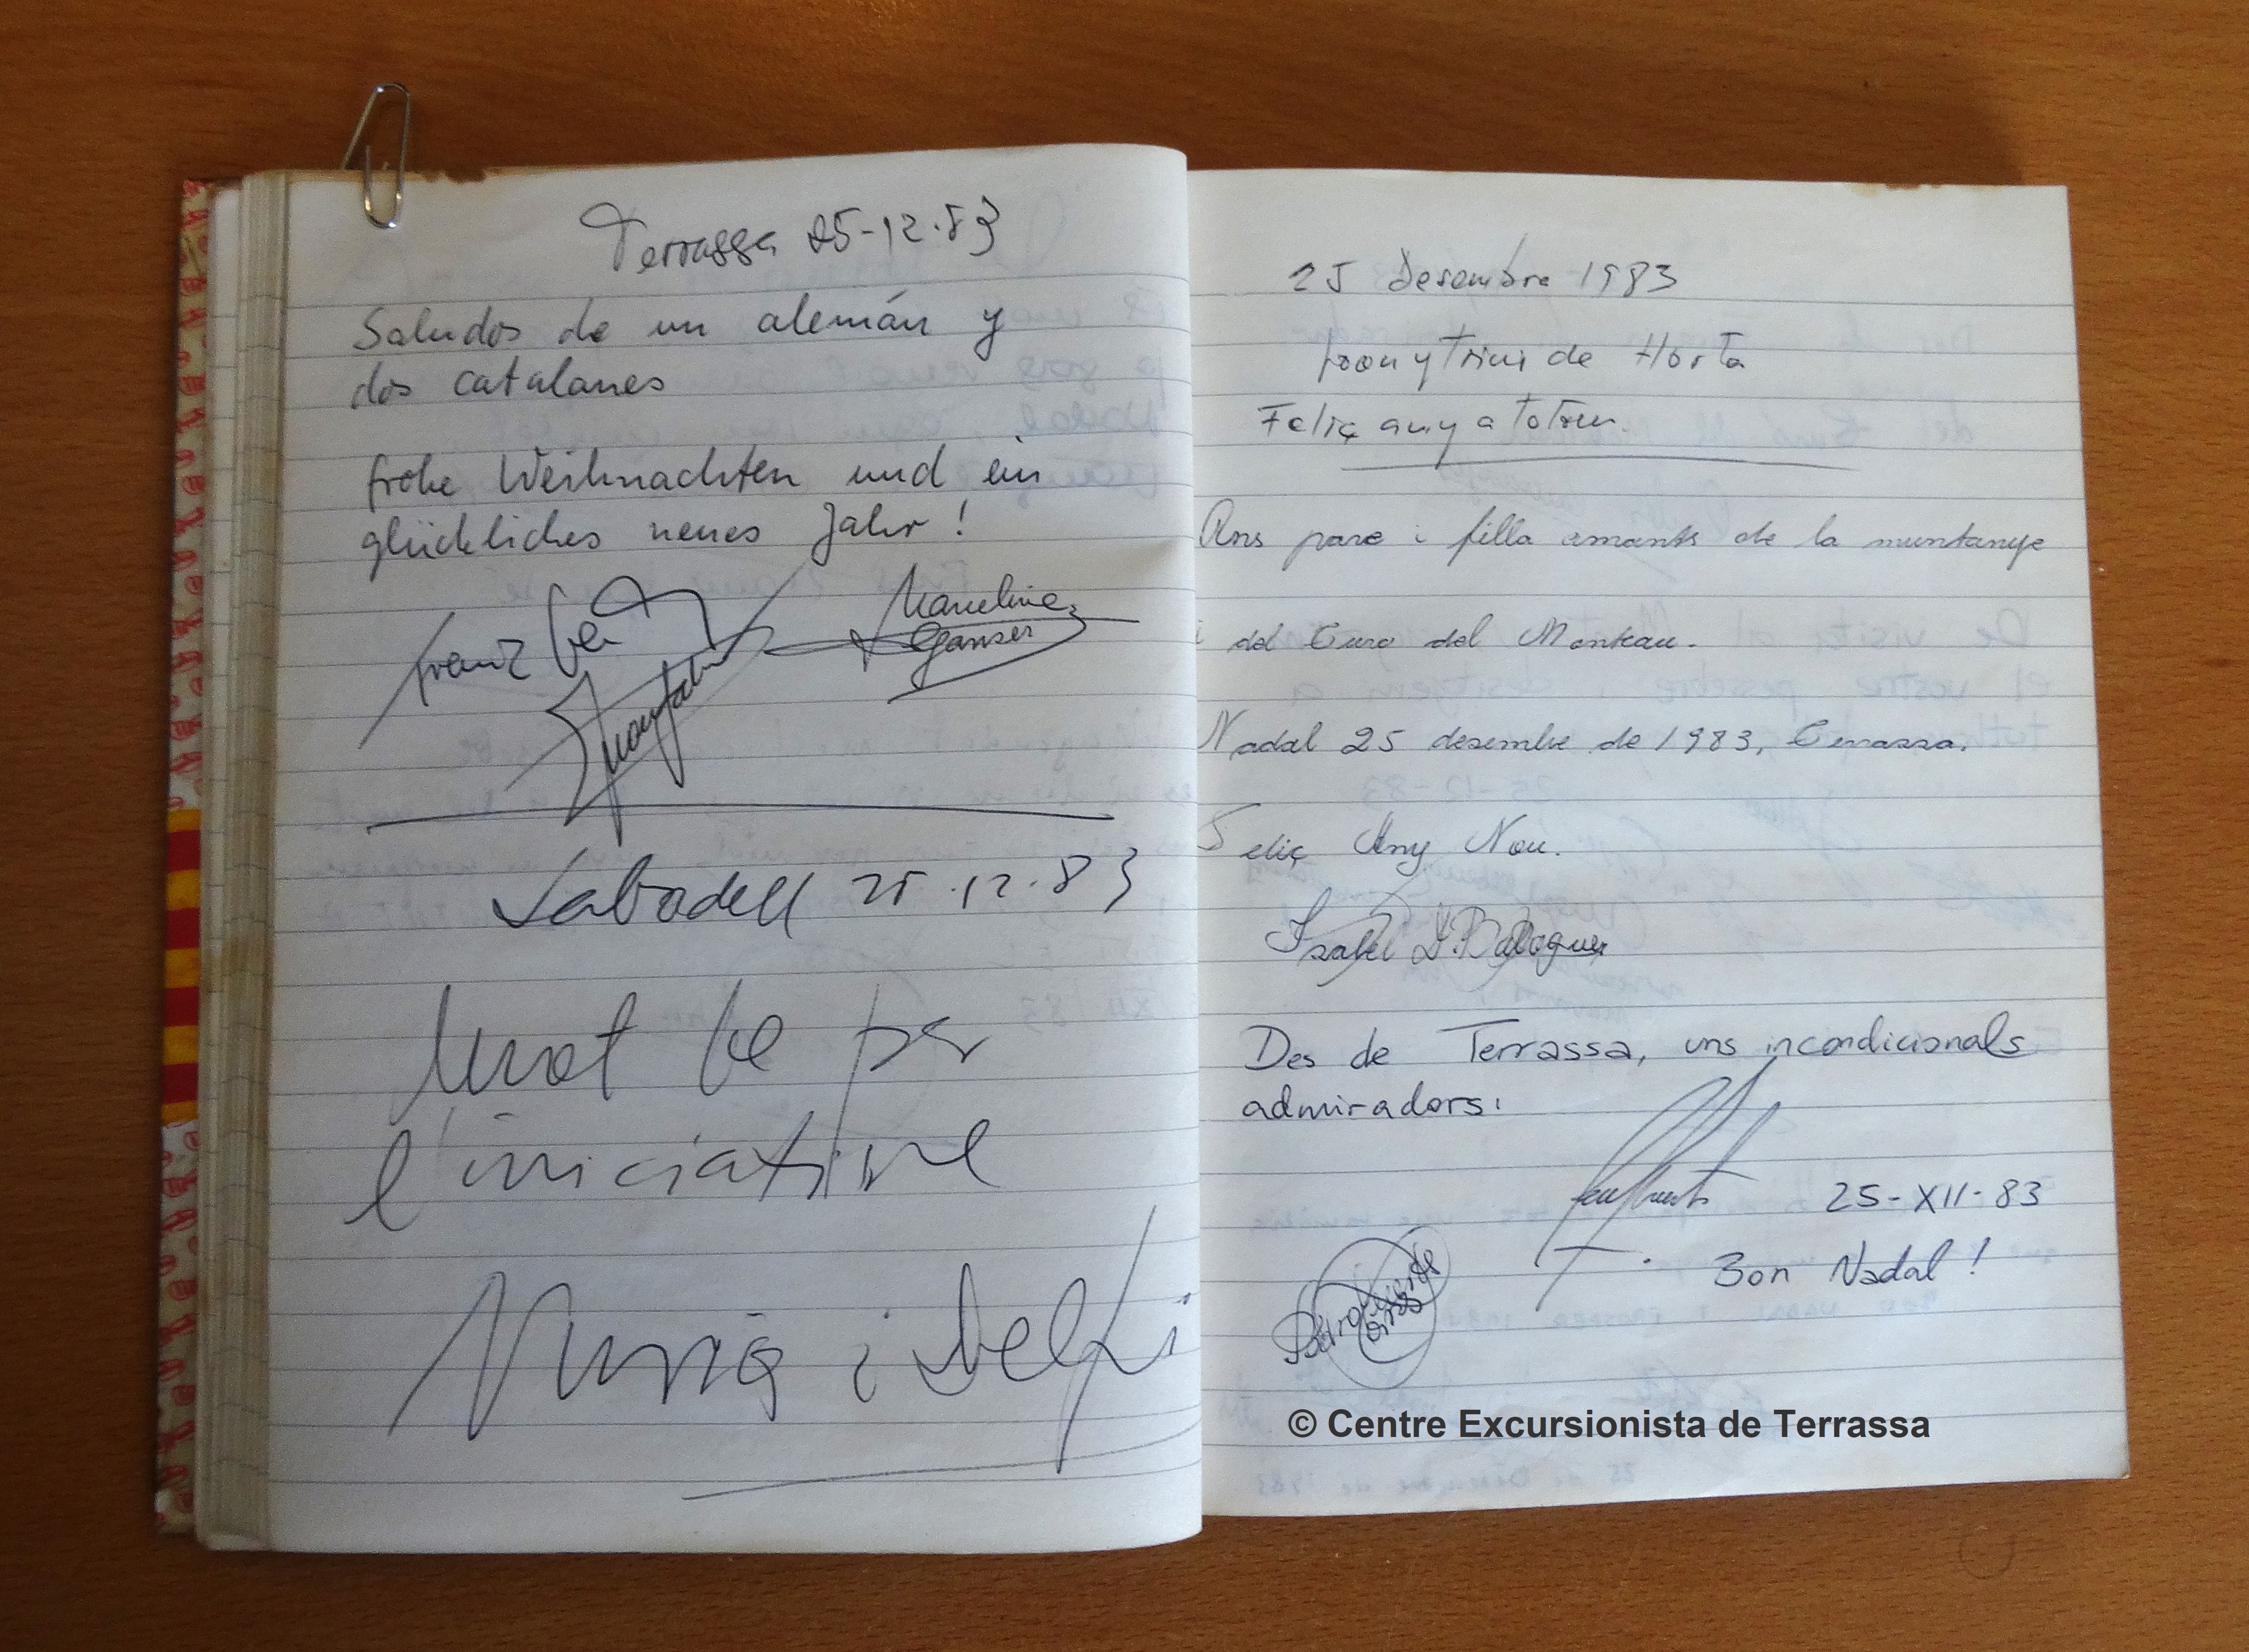 Terrassa 25-12-83
Saludos de un alemán y
dos catalanes
frohe Weihnachten und ein
glückliches neues Jahr!
Franz
Marcelino
Ganser
Sabadell 25.12.83
Molt be per
l'iniciativa
Nuria i Delfi
25 Desembre 1983
Joan y Trini de Horta
Feliç any a totom.
Uns pare i filla amants de la muntanya
i del Turo del Montcau.
Nadal 25 desembre de 1983, Terrassa.
Feliç Any Nou.
Isabel Balaguer
Des de Terrassa, uns incondicionals
admiradors:
25-XII-83
Bon Nadal!
© Centre Excursionista de Terrassa